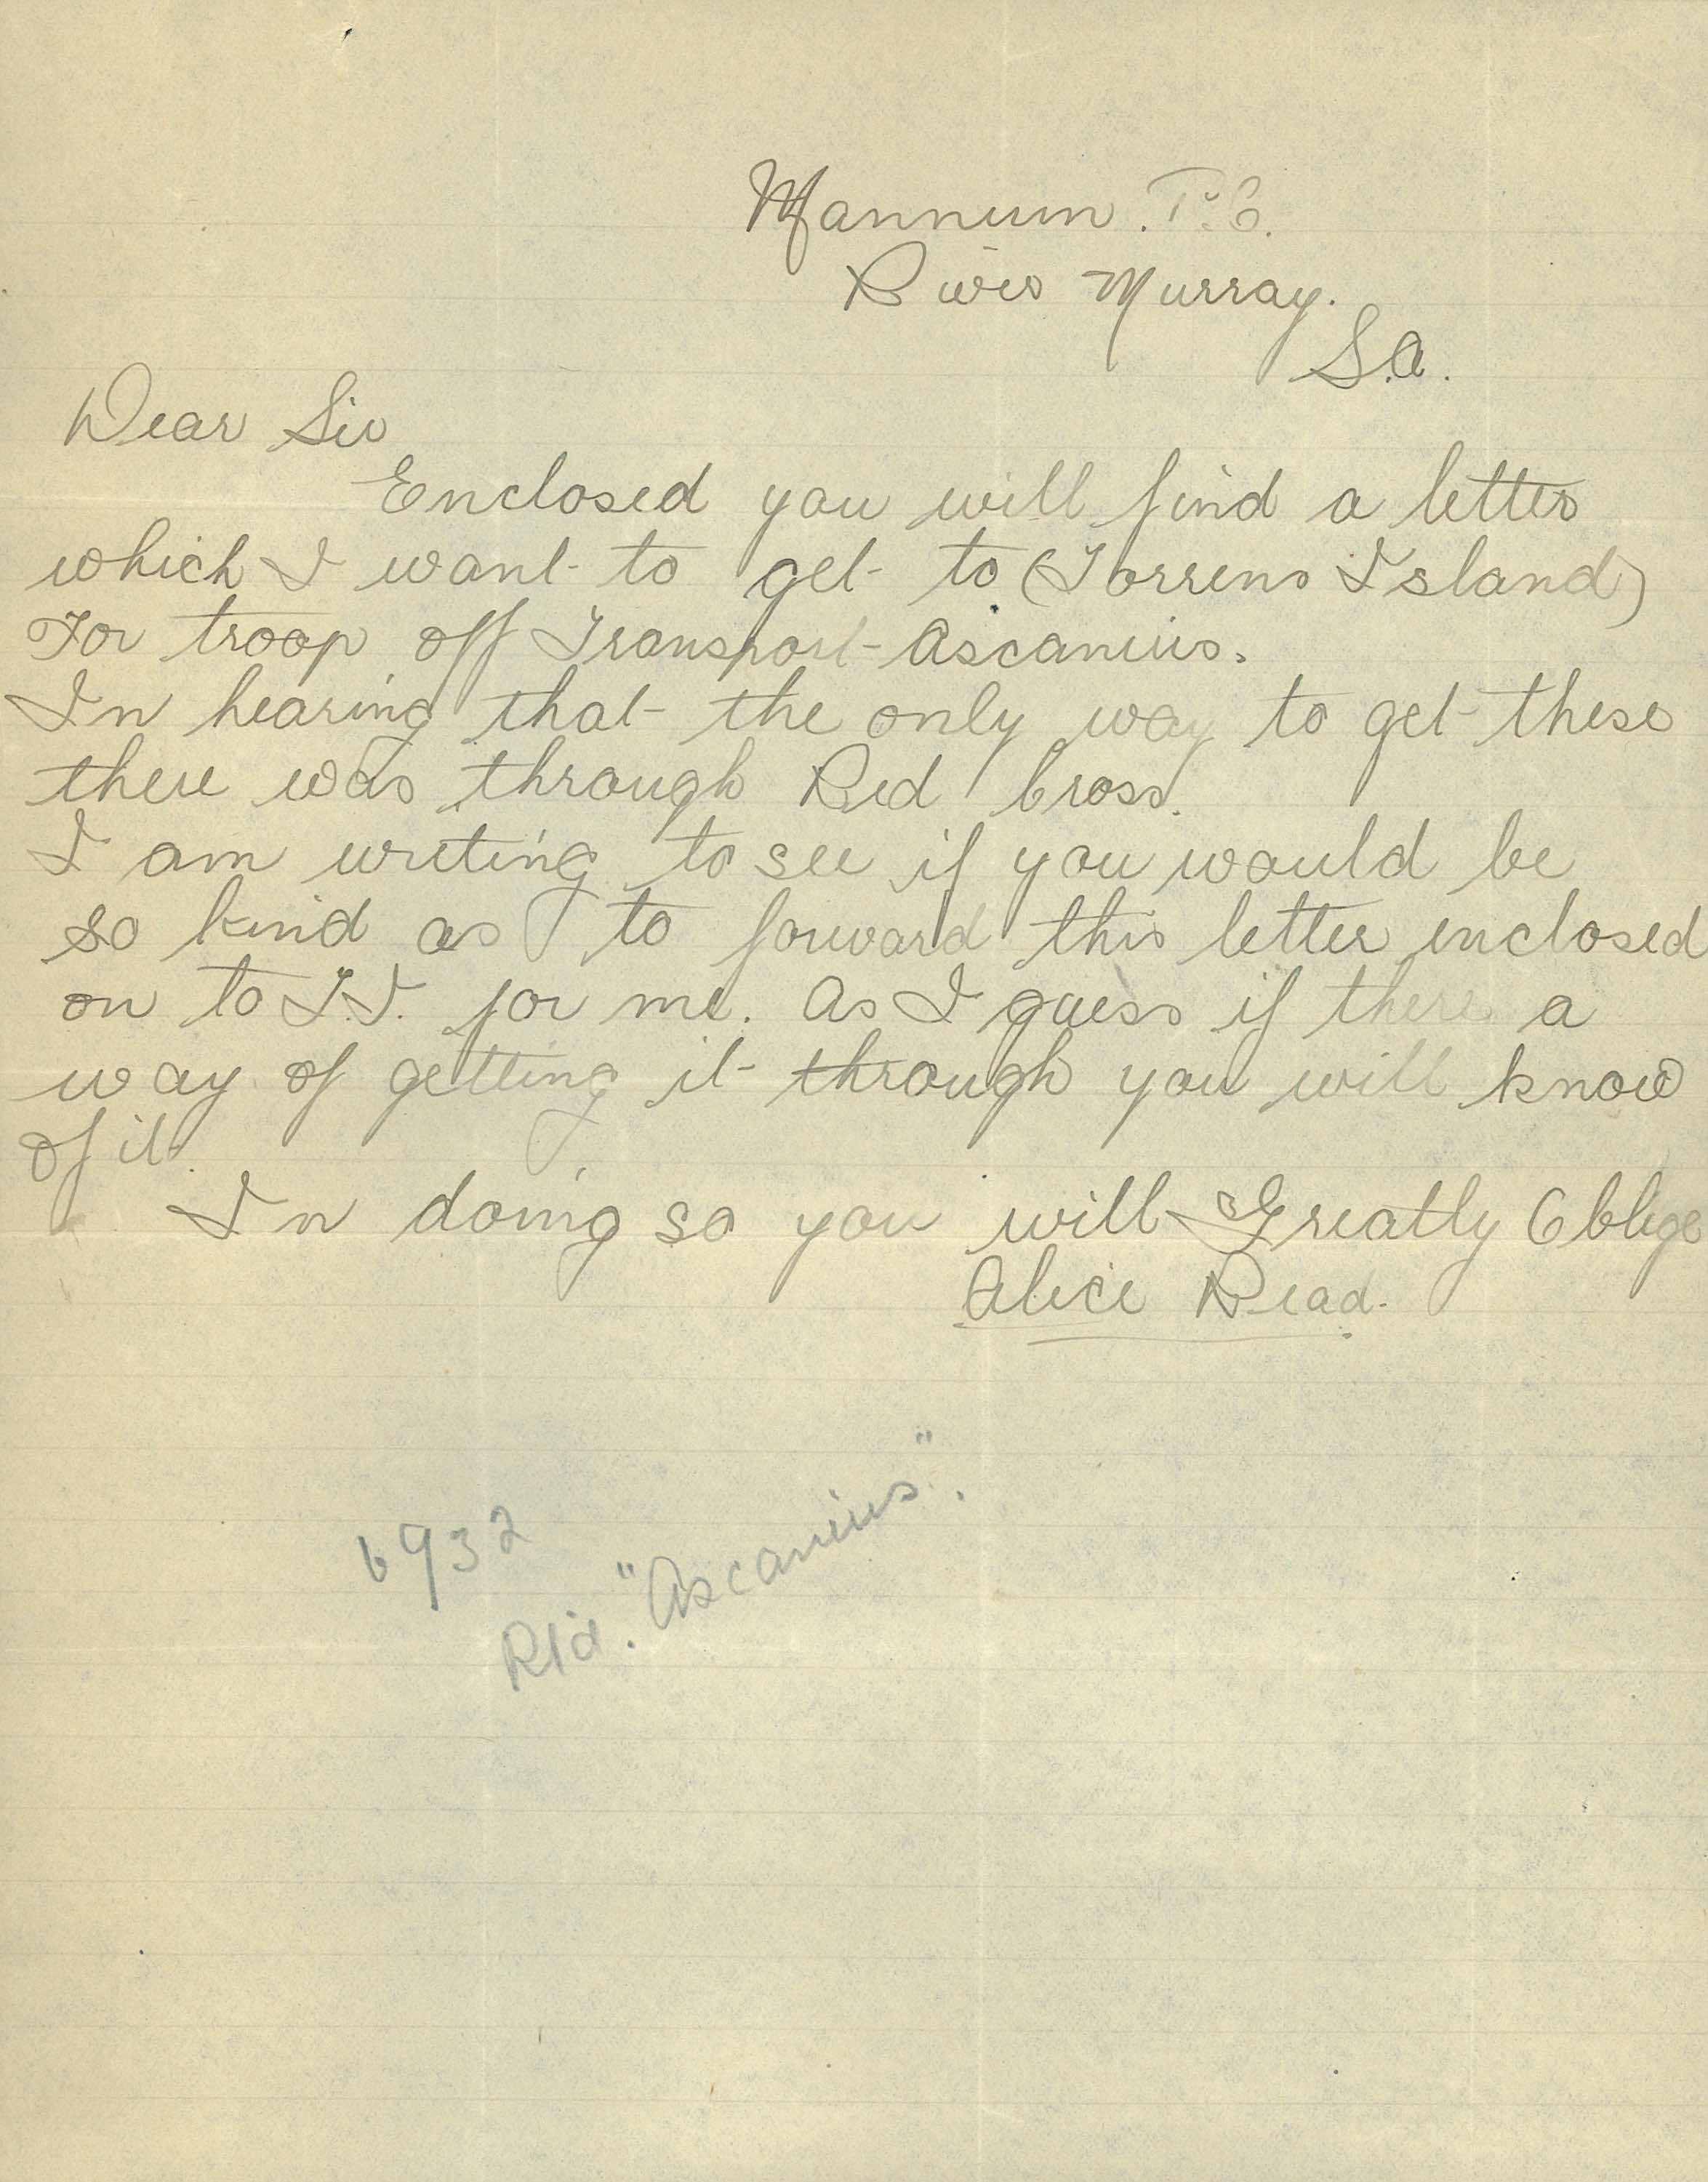 Mannum. P.O.
River Murray.
S.A.
Dear Sir
Enclosed you will find a letter
which I want to get to (Torrens Island)
For troop off Transport Ascanius.
In hearing that the only way to get these
there was through Red Cross.
I am writing to see if you would be
so kind as to forward this letter enclosed
on to T.I. for me. As I guess if there a
way of getting it through you will know
of it.
In doing so you will Greatly Oblige
Alice Read.
6932
"Ascanius".